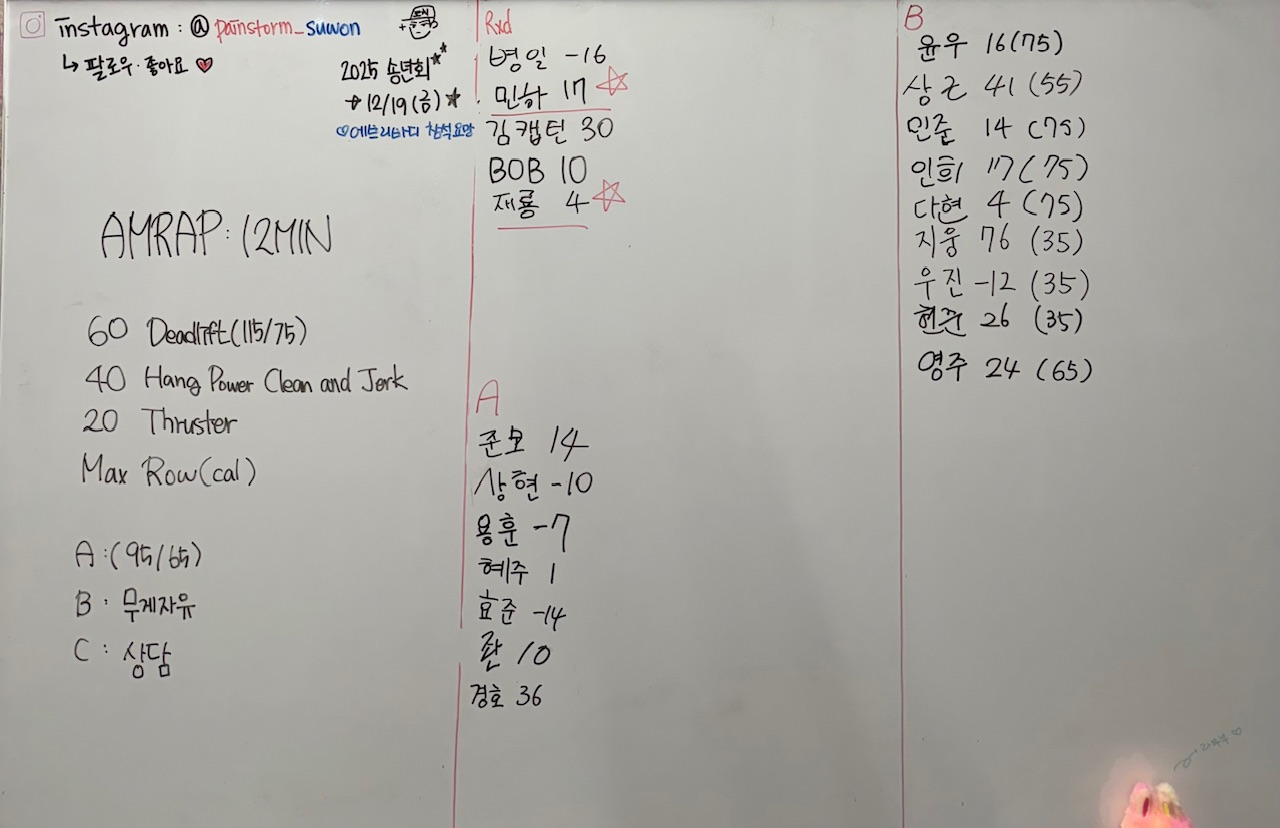 instagram : @painstorm_suwon
↳ 팔로우·좋아요 ♥
2025 송년회★★
→ 12/19(금)★
♡에브리바디 참석요망
AMRAP: 12MIN
60 Deadlift(115/75)
40 Hang Power Clean and Jerk
20 Thruster
Max Row(cal)
A:(95/65)
B: 무게자유
C: 상담
Rxd
병일 -16
민하 17 ☆
김캡틴 30
BOB 10
재룡 4 ☆
A
준모 14
상현 -10
용훈 -7
혜주 1
효준 -14
란 10
경호 36
B
윤우 16(75)
상근 41 (55)
민준 14 (75)
인희 17(75)
다현 4 (75)
지웅 76 (35)
우진 -12 (35)
현준 26 (35)
영주 24 (65)